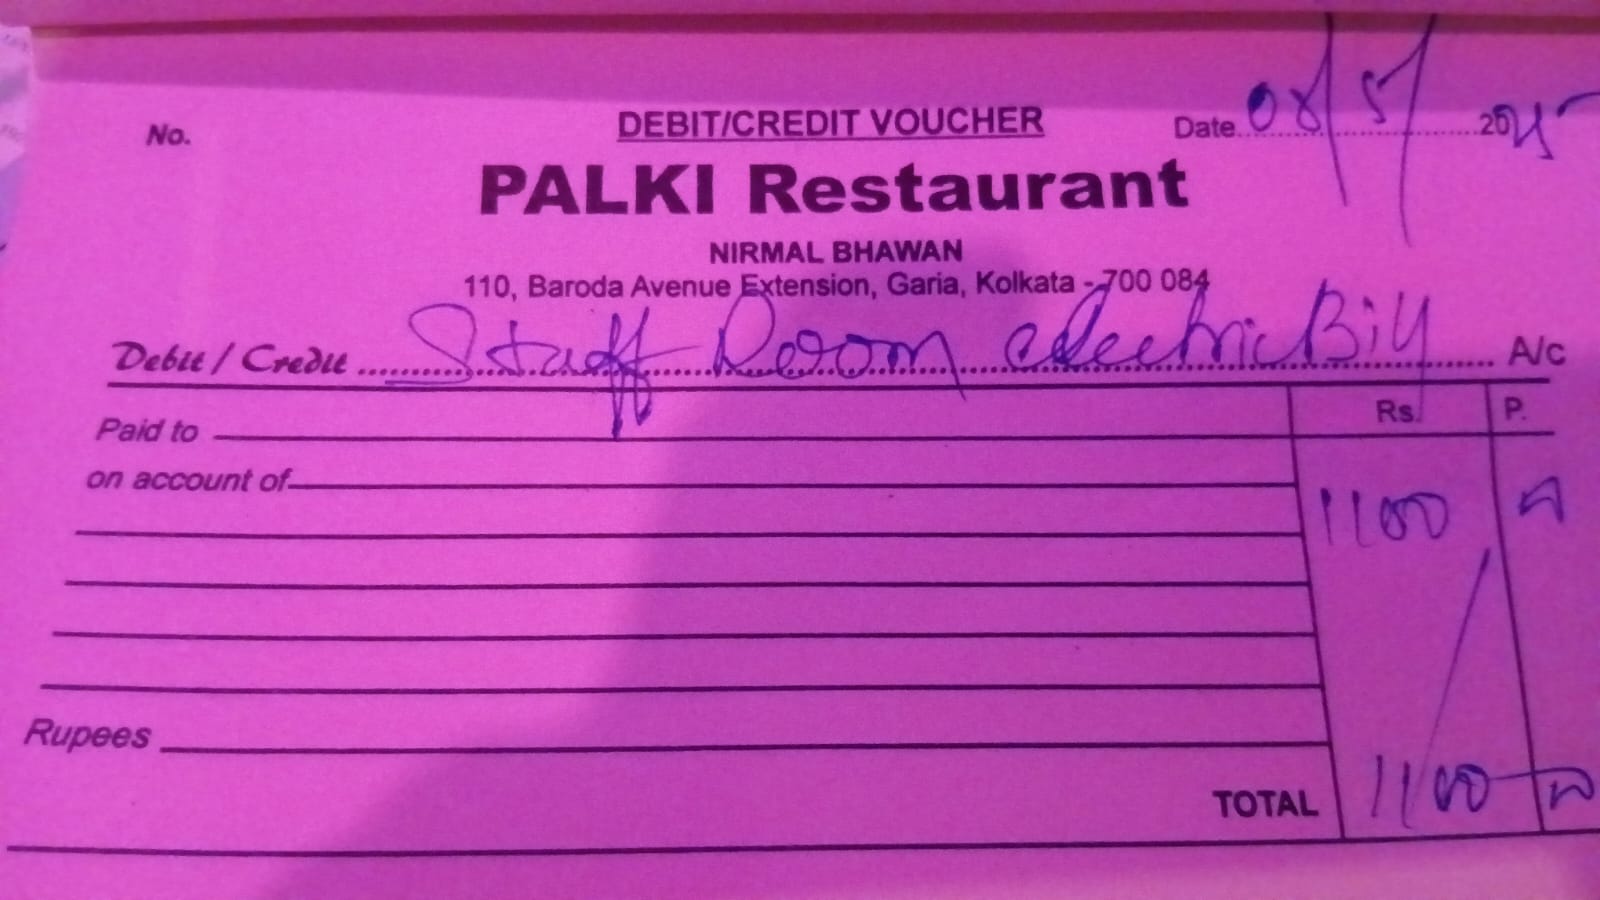 No.
DEBIT/CREDIT VOUCHER
Date 08/5/ 2025
PALKI Restaurant
NIRMAL BHAWAN
110, Baroda Avenue Extension, Garia, Kolkata - 700 084
Debit / Credit Staff Room electric Bill A/c
Rs. P.
Paid to
on account of
1100
Rupees
TOTAL 1100